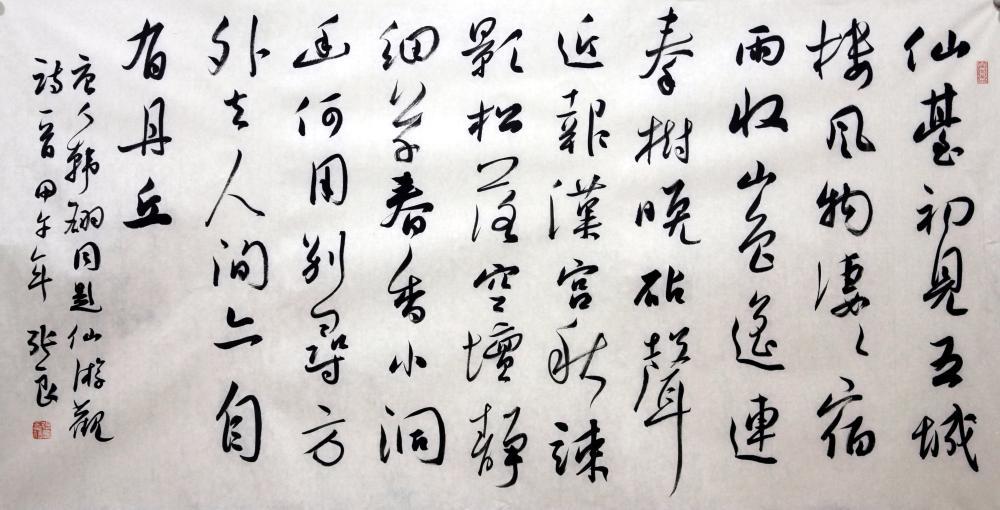 仙臺初見五城
樓風物凄々宿
雨收山色遙連
秦樹晚砧聲
近報漢宮秋疎
影松落空壇靜
细草春香小洞
幽何用别尋方
外去人間亦自
有丹丘
唐人韓翃同題仙游觀
詩一首甲午年 張良